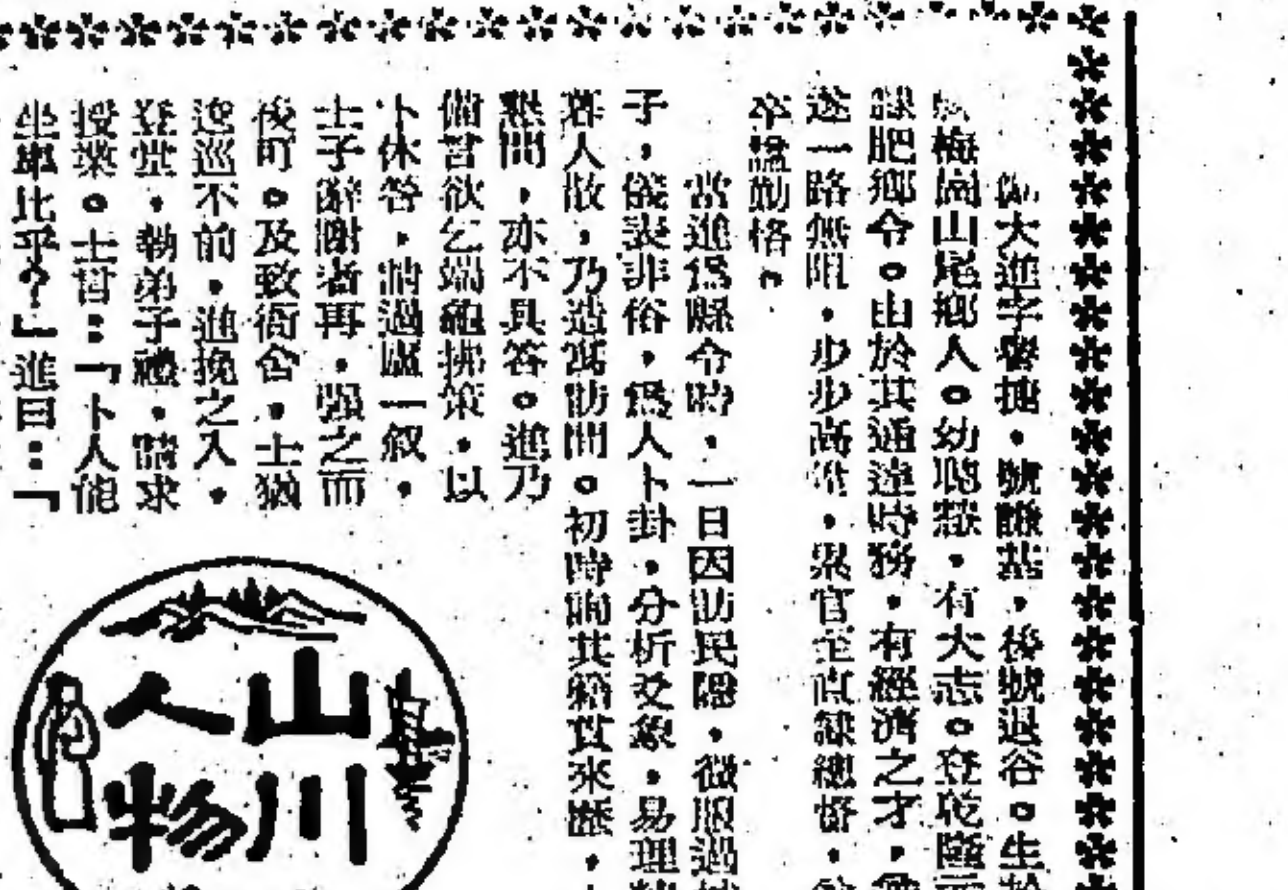 大進字譽捷，號謙基，後號退谷。生於
梅崗山尾鄉人。幼聰慧，有大志。登乾隆元
隸肥鄉令。由於其通達時務，有經濟之才，
遂一路無阻，步步高陞，累官至直隸總督，
卒諡勤恪。
當進爲縣令時，一日因訪民隱，微服過
子，儀表非俗，爲人卜卦，分析爻象，易理
暮人散，乃造寓訪問。初時詢其籍貫來歷，
懇問，亦不具答。進乃
備言欲乞端龜拂策，以
卜休咎，請過廬一敘，
士子辭謝者再，强之而
後可。及致衙舍，士猶
逡巡不前，進挽之入，
登堂，執弟子禮，請求
授業。士曰：「卜人能
坐臯比乎？」進曰：「
山川
人物